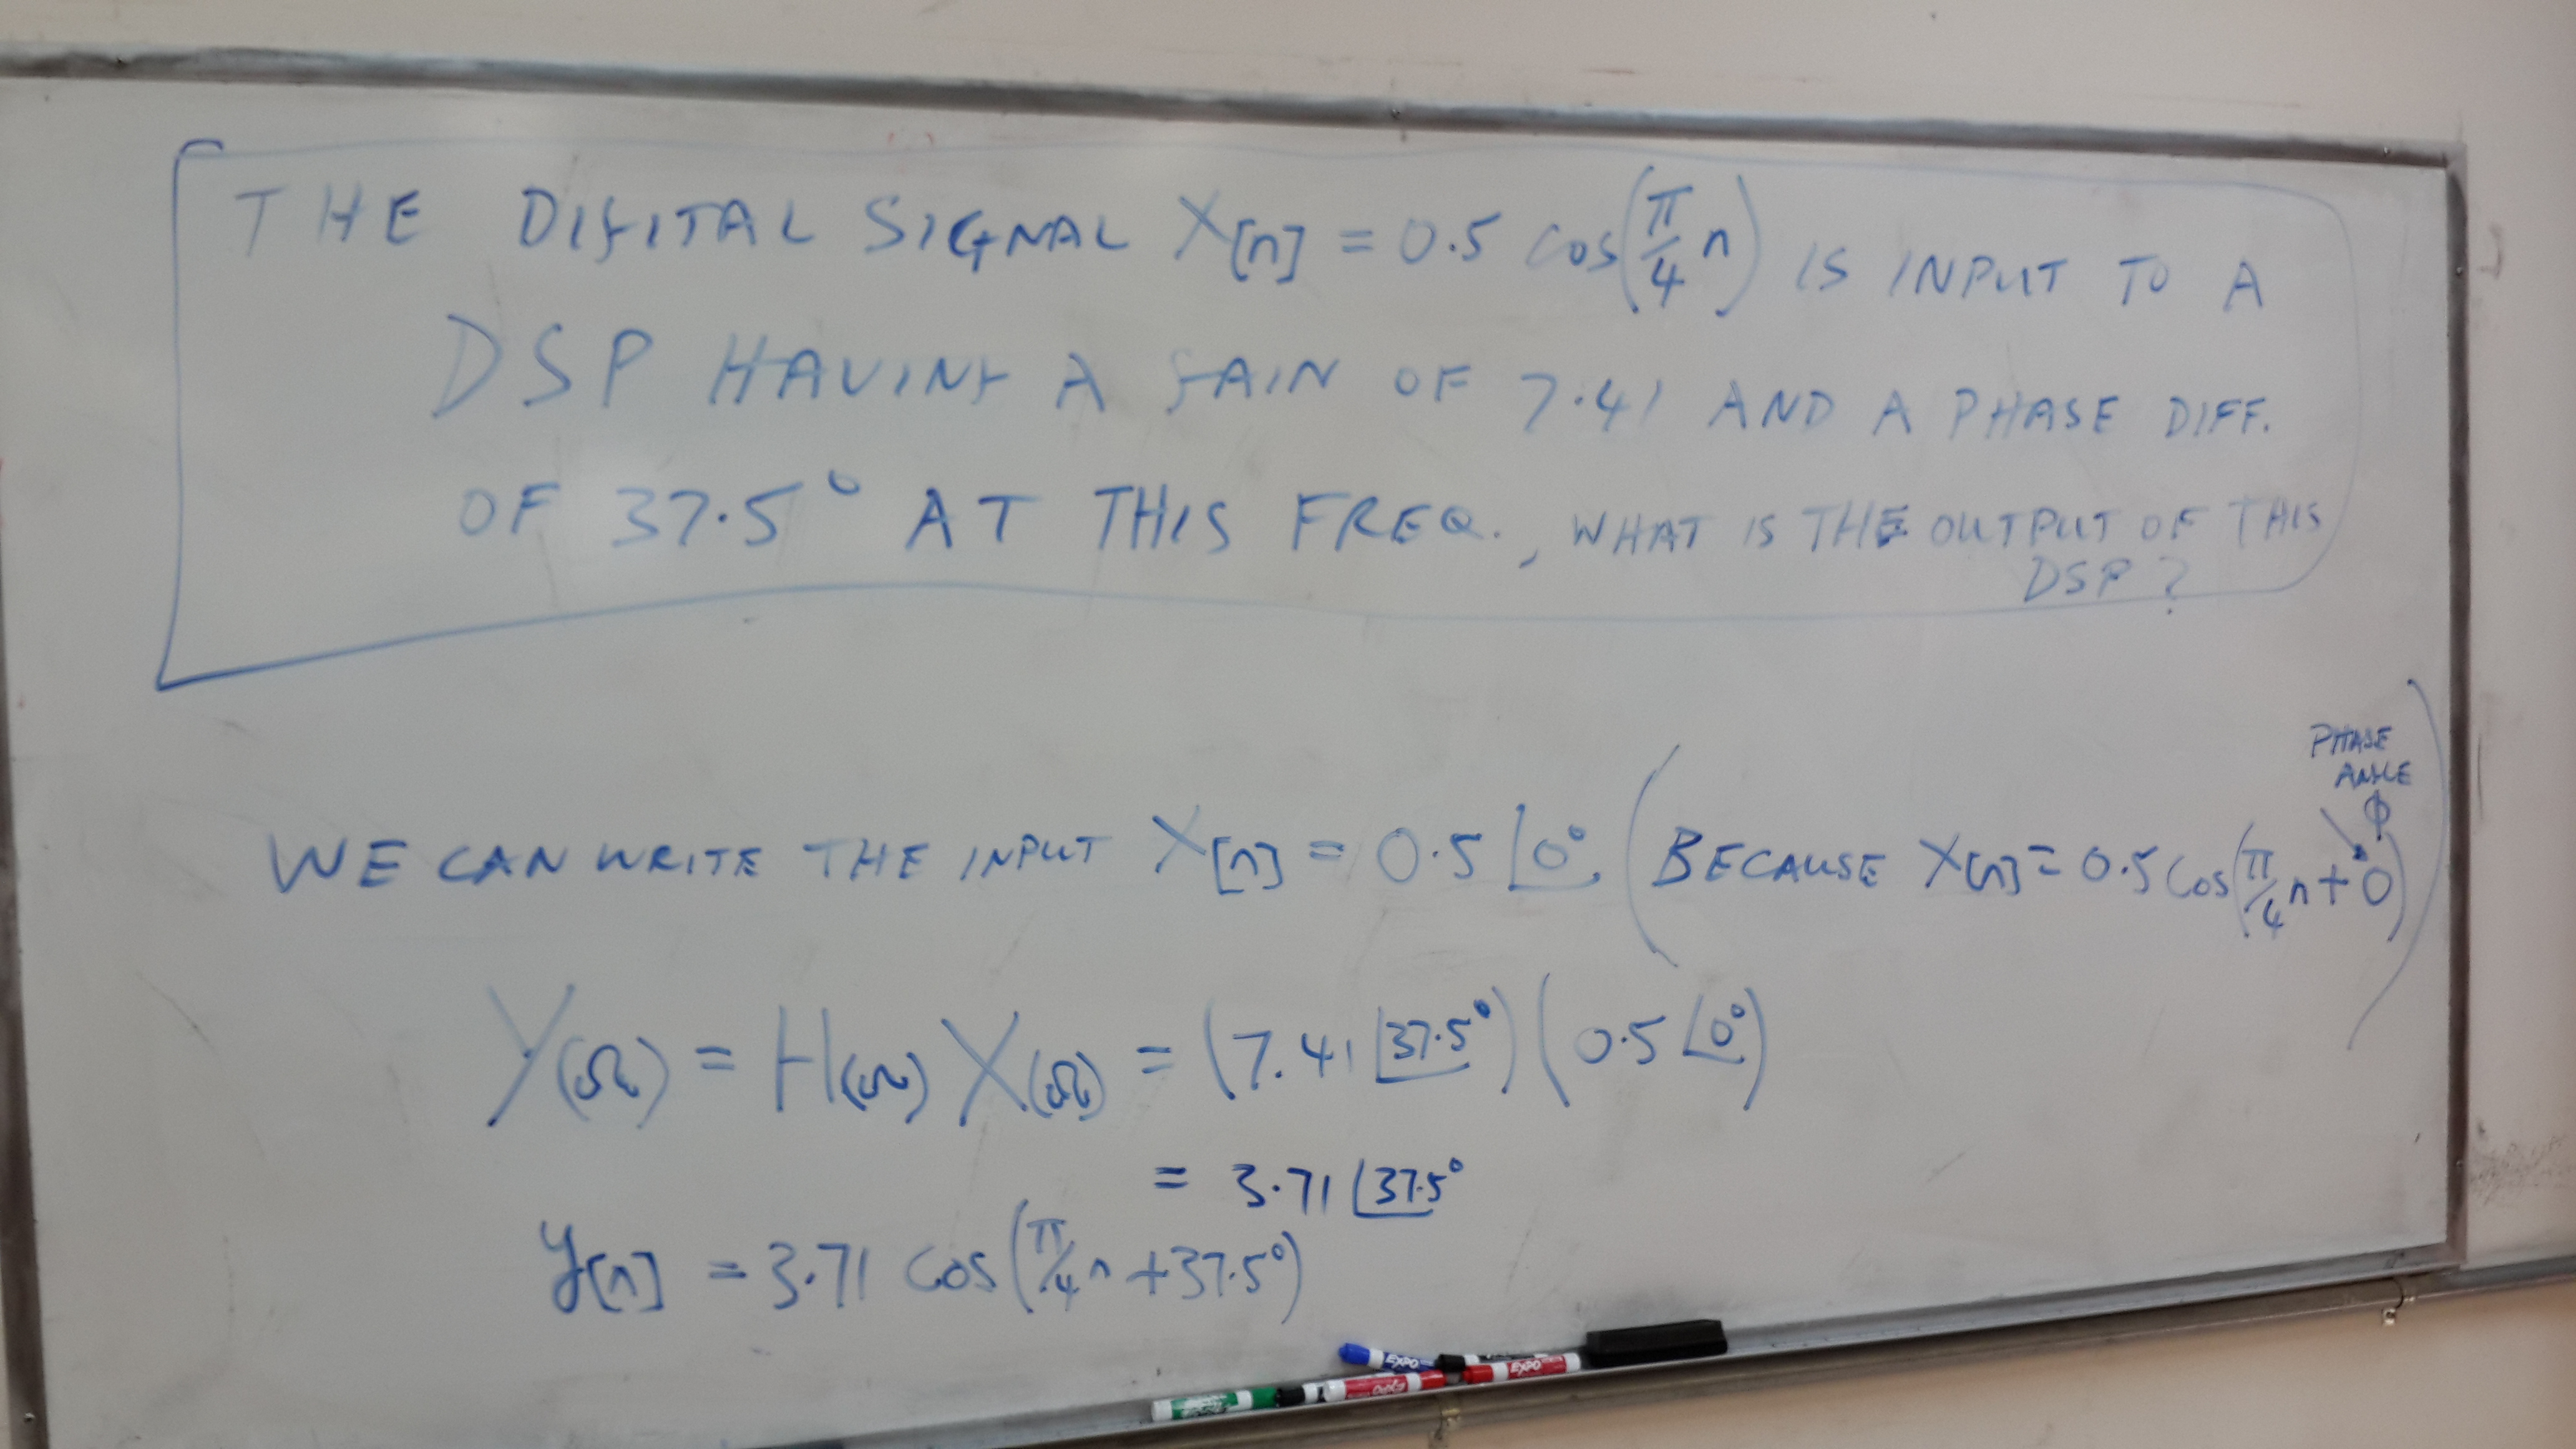 THE DIGITAL SIGNAL X[n] = 0.5 cos(π/4 n) IS INPUT TO A
DSP HAVING A GAIN OF 7.41 AND A PHASE DIFF.
OF 37.5° AT THIS FREQ., WHAT IS THE OUTPUT OF THIS
DSP?
PHASE
ANGLE
ϕ
WE CAN WRITE THE INPUT X[n] = 0.5 ∠0°. (BECAUSE X[n] = 0.5 cos(π/4 n + 0))
Y(Ω) = H(Ω) X(Ω) = (7.41 ∠37.5°)(0.5 ∠0°)
= 3.71 ∠37.5°
y[n] = 3.71 cos(π/4 n + 37.5°)
EXPO
EXPO